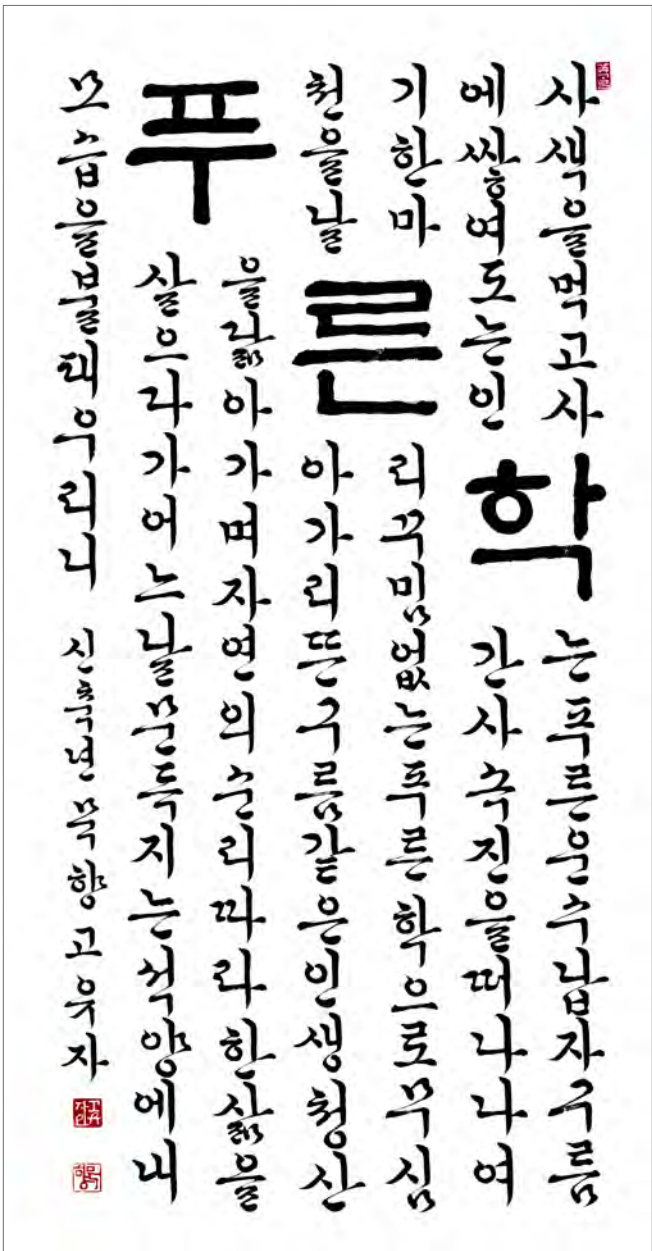 푸른학
사색을먹고사는푸른운수납자구름
에쌓여도는인간사속진을떠나나여
기한마리꾸밈없는푸른학으로무심
천을날아가리뜬구름같은인생청산
을닮아가며자연의순리따라한삶을
살으라가어느날문득지는석양에내
모습을불태우리니 신축년묵향고옥자